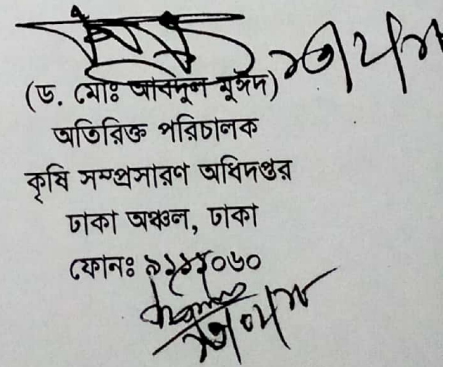 (ড. মোঃ আবদুল মুঈদ)
অতিরিক্ত পরিচালক
কৃষি সম্প্রসারণ অধিদপ্তর
ঢাকা অঞ্চল, ঢাকা
ফোনঃ